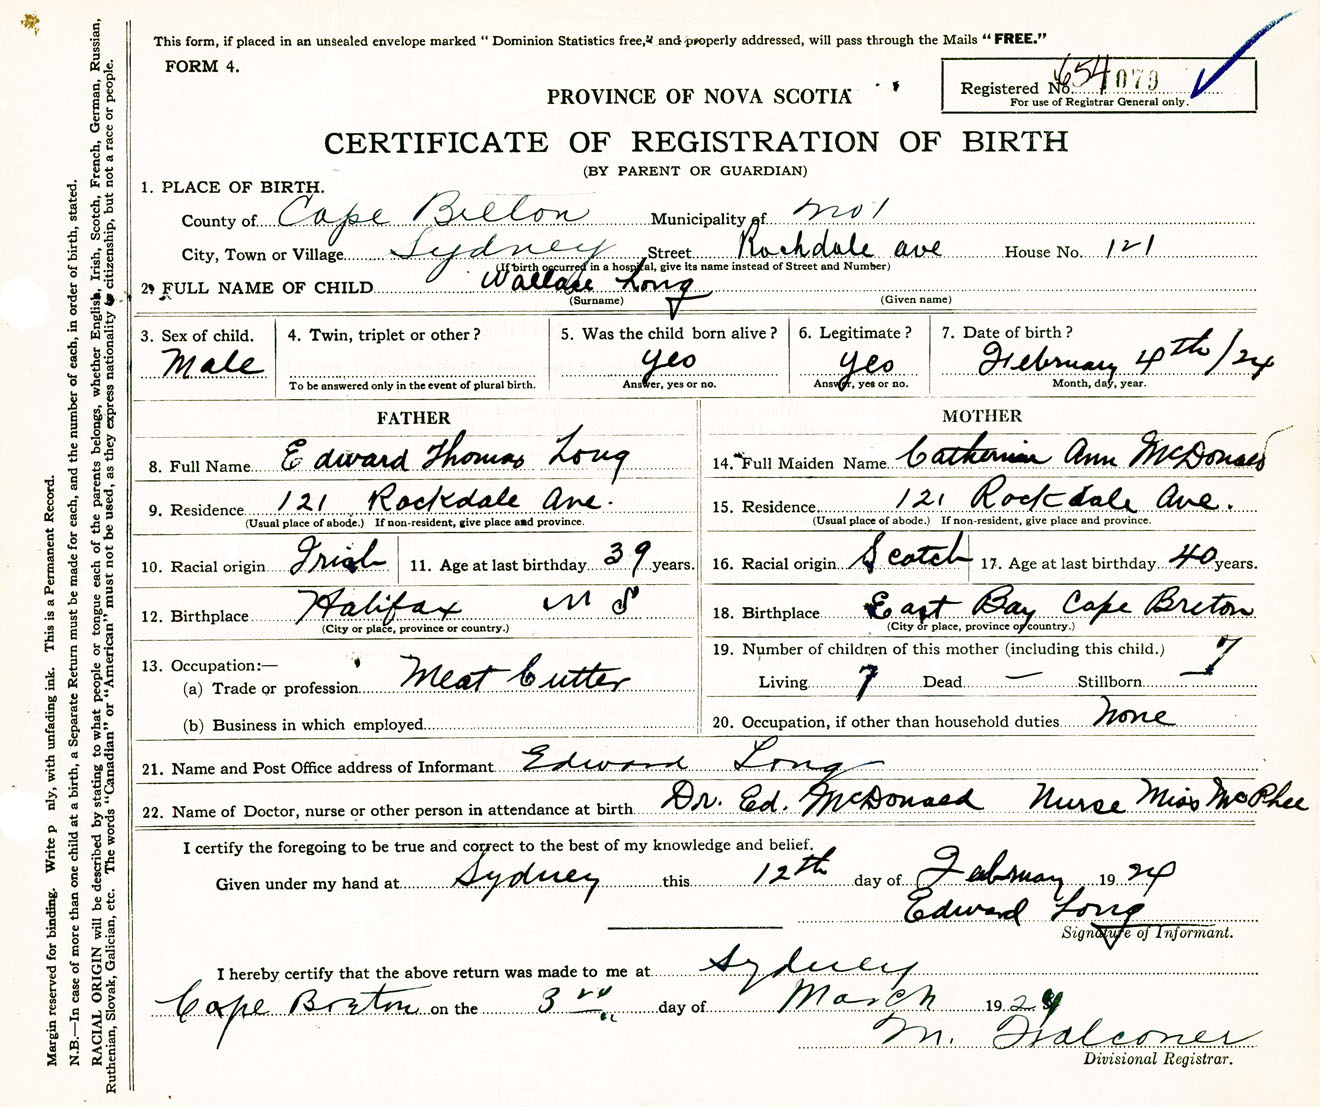 This form, if placed in an unsealed envelope marked "Dominion Statistics free," and properly addressed, will pass through the Mails "FREE."
FORM 4.
Registered No. 654 1079
For use of Registrar General only.
PROVINCE OF NOVA SCOTIA
CERTIFICATE OF REGISTRATION OF BIRTH
(BY PARENT OR GUARDIAN)
1. PLACE OF BIRTH.
County of Cape Breton Municipality of No 1
City, Town or Village Sydney Street Rockdale ave House No. 121
(If birth occurred in a hospital, give its name instead of Street and Number)
2. FULL NAME OF CHILD Wallace Long
(Surname) (Given name)
3. Sex of child. 4. Twin, triplet or other? 5. Was the child born alive? 6. Legitimate? 7. Date of birth?
Male yes yes February 4th/24
To be answered only in the event of plural birth. Answer, yes or no. Answer, yes or no. Month, day, year.
FATHER
8. Full Name Edward Thomas Long
9. Residence 121 Rockdale Ave.
(Usual place of abode.) If non-resident, give place and province.
10. Racial origin Irish 11. Age at last birthday 39 years.
12. Birthplace Halifax N S
(City or place, province or country.)
13. Occupation:—
(a) Trade or profession Meat Cutter
(b) Business in which employed
MOTHER
14. Full Maiden Name Catherine Ann McDonald
15. Residence 121 Rockdale Ave.
(Usual place of abode.) If non-resident, give place and province.
16. Racial origin Scotch 17. Age at last birthday 40 years.
18. Birthplace East Bay Cape Breton
(City or place, province or country.)
19. Number of children of this mother (including this child.) 7
Living 7 Dead — Stillborn —
20. Occupation, if other than household duties None
21. Name and Post Office address of Informant Edward Long
22. Name of Doctor, nurse or other person in attendance at birth Dr. Ed. McDonald Nurse Miss McPhee
I certify the foregoing to be true and correct to the best of my knowledge and belief.
Given under my hand at Sydney this 12th day of February 1924
Edward Long
Signature of Informant.
I hereby certify that the above return was made to me at Sydney
Cape Breton on the 3rd day of March 1924
M. Falconer
Divisional Registrar.
Margin reserved for binding. Write p nly, with unfading ink. This is a Permanent Record.
N.B.—In case of more than one child at a birth, a Separate Return must be made for each, and the number of each, in order of birth, stated.
RACIAL ORIGIN will be described by stating to what people or tongue each of the parents belongs, whether English, Irish, Scotch, French, German, Russian,
Ruthenian, Slovak, Galician, etc. The words "Canadian" or "American" must not be used, as they express nationality or citizenship, but not a race or people.